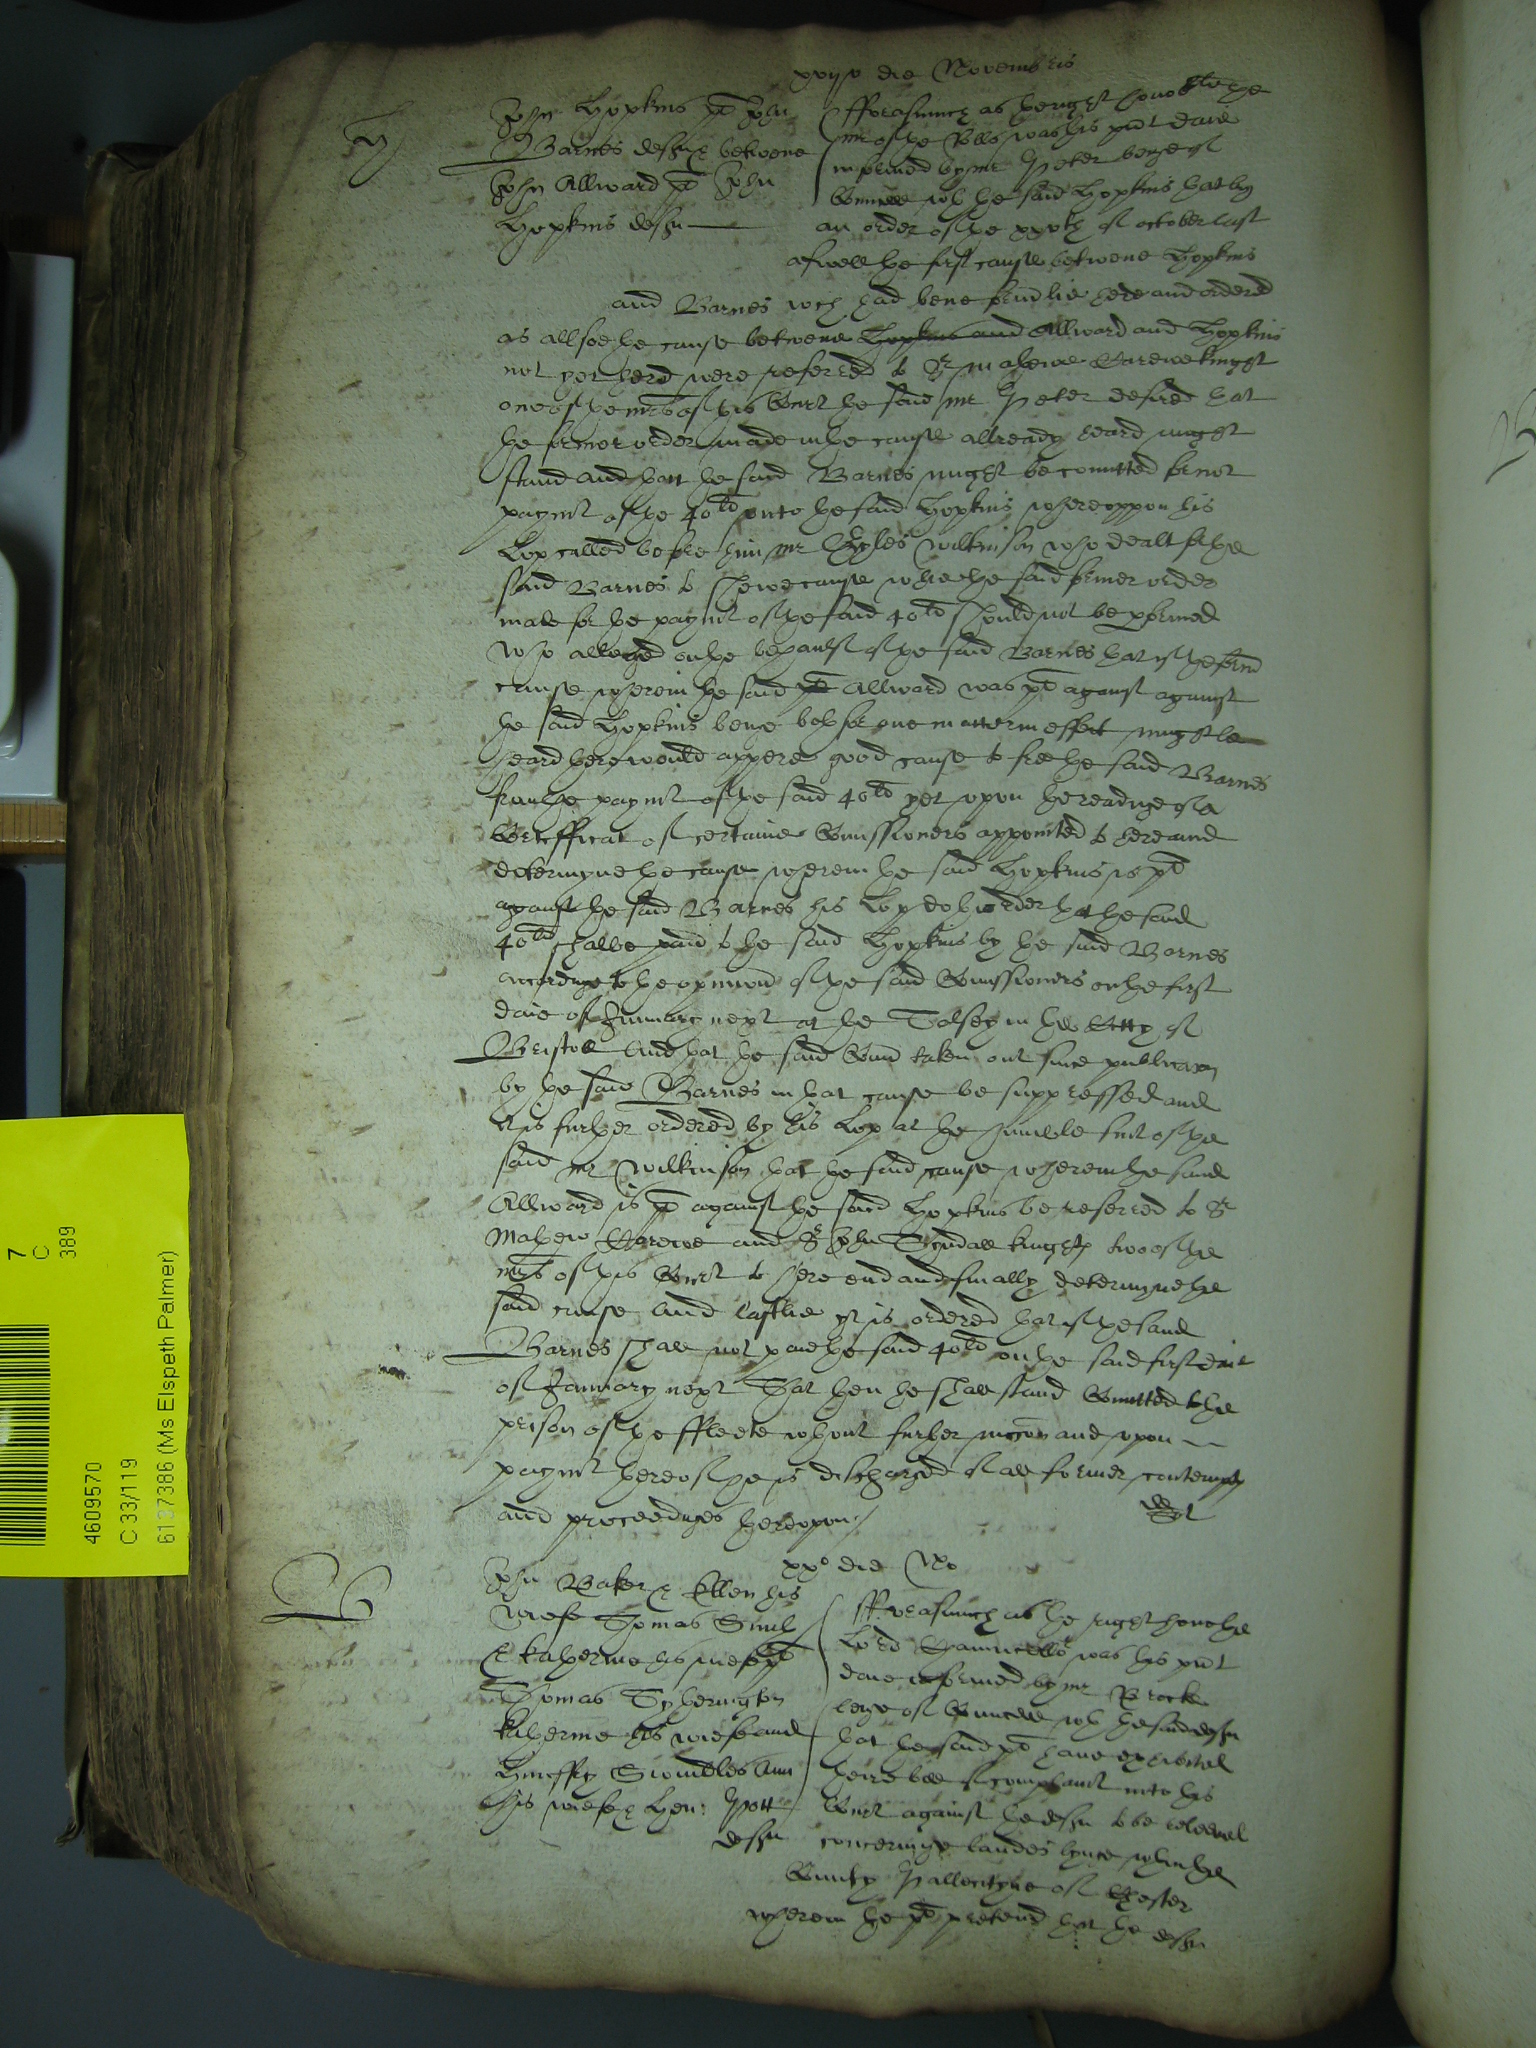 die Novembris
H
John Hopkins pl John
Barnes deft & betwene
John Allward pl John
Hopkins deft
fforasmuch as the right honoble the
mr of the Rolls was this pnt daie
informed by mr Peter beinge of
Councell wth the said Hopkins that by
an order of the xxvth of october last
aswell the first cause betwene Hopkins
and Barnes wch had bene formlie herd and ordered
as allsoe the cause betwene Hopkins and Allward and Hopkins
not yet herd were referred to Sr Mathewe Carewe knight
one of the mrs of this Court the said mr Peter desired that
the former order made in the cause allready heard might
stand and that the said Barnes might be comitted for not
paymt of the 40ld unto the said Hopkins whereuppon his
Lop called before him mr Gyles Wilkinson who dealt for the
said Barnes to shewe cause whie the said former order
made for the paymt of the said 40ld should not be pformed
who alleged on the behaulf of the said Barnes that if the second
cause wherein the said pl Allward was pl against against
the said Hopkins beinge both for one matter in effect might be
heard there would appere good cause to free the said Barnes
from the paymt of the said 40ld yet upon the readinge of a
Certifficat of certaine Comissioners appointed to here and
determyne the cause wherein the said Hopkins is pl
against the said Barnes his Lop doth order that the said
40ld shalbe paid to the said Hopkins by the said Barnes
accordinge to the opinion of the said Comissioners on the first
daie of January next at the Tolsey in the Citty of
Bristoll And that the said Comn taken out since publicacon
by the said Barnes in that cause be suppressed and
it is further ordered by his Lop at the humble suit of the
said mr Wilkinson that the said cause wherein the said
Allward is pl against the said Hopkins be referred to Sr
Mathew Carewe and Sr John Tyndall knights two of the
mrs of this Court to here end and finally determyne the
said cause And lastlie yt is ordered that if the said
Barnes shall not paie the said 40ld on the said first daie
of January next That then he shall stand Comitted to the
prison of the ffleete wthout further mocon and upon
paymt thereof he is discharged of all former contempts
and proceedings thereupon
xxo die No
B
John Baker & Ellen his
wiefe Thomas
& Katherine his wiefe pl
Thomas Tytherington
Katherine his wiefe and
Humffry Swindles Ann
his wiefe & Hen: Pott
deft
fforasmuch as the right hono the
Lord Chauncellr was this pnt
daie informed by mr Brocke
beinge of Councell wth the said deft
that the said pl have exhibited
theire bill of complaint into this
Court against the deft to be releeved
concerninge landes lyinge wthin the
County Pallentyne of Chester
wherein the pl pretend that the deft
7
C
389
4609570
C 33/119
6137386 (Ms Elspeth Palmer)